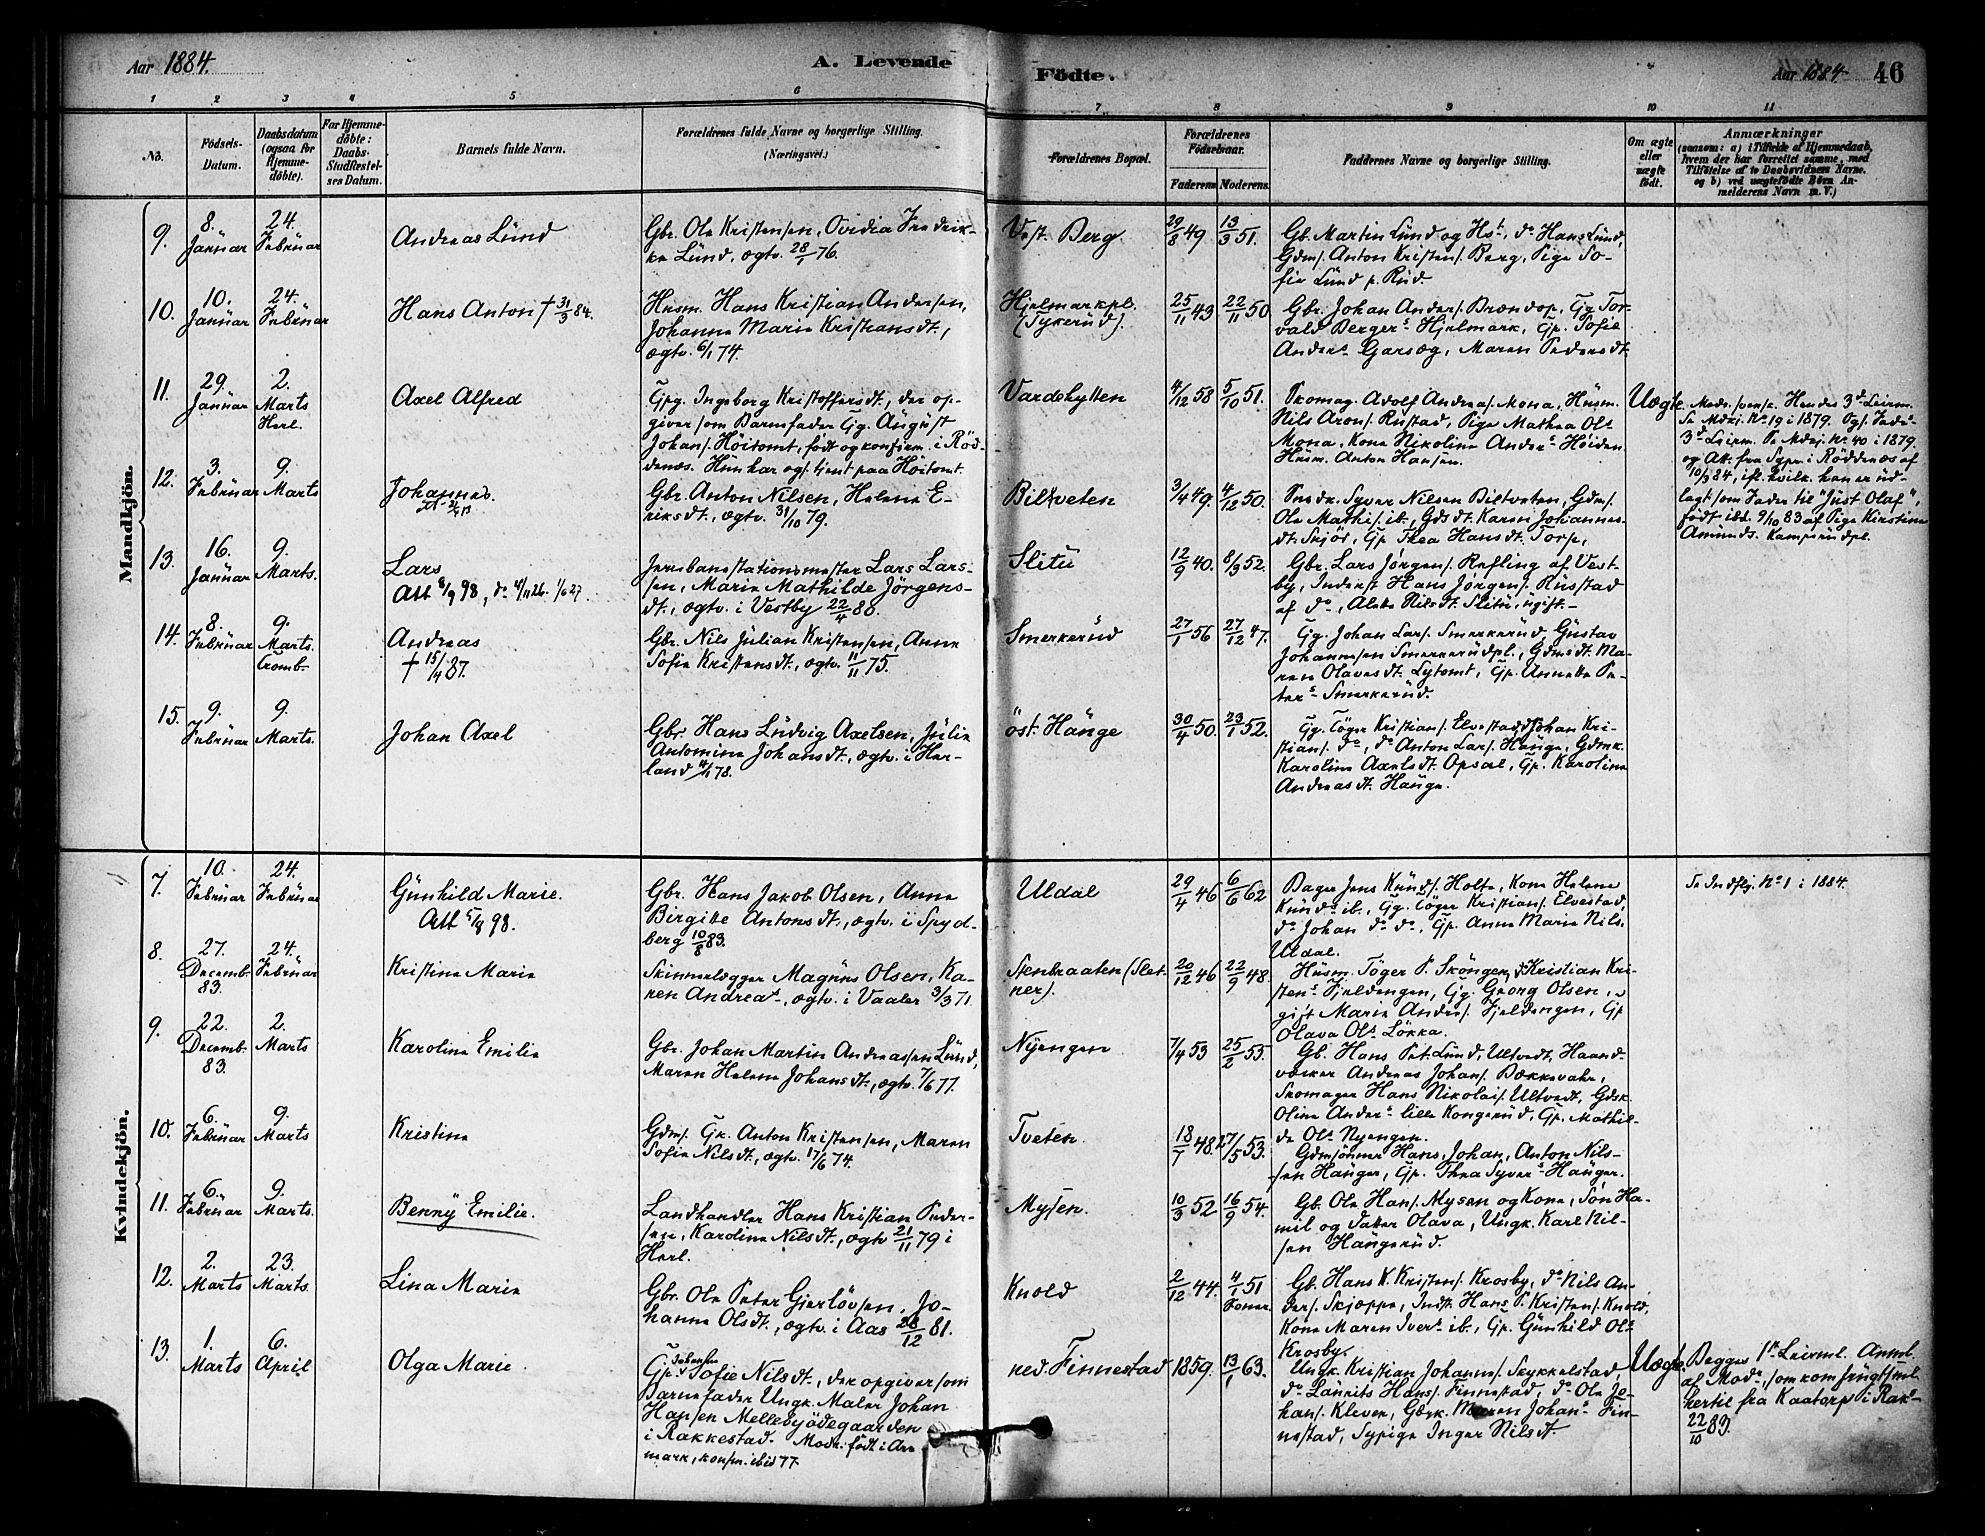 Aar 1884.
A. Levende Födte.
Aar 1884.
46
1 2 3 4 5 6 7 8 9 10 11
No.
Födsels-
Datum.
Daabsdatum
(ogsaa for
Hjemme-
döbte).
For Hjemme-
döbte:
Daabs-
Stadfæstel-
ses Datum.
Barnets fulde Navn.
Forældrenes fulde Navne og borgerlige Stilling.
(Næringsvei.)
Forældrenes Bopæl.
Forældrenes
Födselsaar.
Faderens. Moderens.
Faddernes Navne og borgerlige Stilling.
Om ægte
eller
uægte
födt.
Anmærkninger
(saasom: a) i Tilfælde af Hjemmedaab,
hvem der har forrettet samme, med
Tilföielse af to Daabsvidners Navne.
og b) ved uægtefödte Börn An-
melderens Navn m. V.)
Mandkjön.
9.
8.
Januar
24.
Februar
Andreas Lund
Gbr. Ole Kristensen, Ovidia Fredrik-
ke Lund, egtv. 28/1 76.
Vest. Berg.
29/8 49. 13/3 51.
Gb. Martin Lund og Hst., do Hans Lund,
Gdm/. Anton Kristen/. Berg, Pige So-
fie Lund p. Rud.
10.
10.
Januar
24.
Februar
Hans Anton † 31/3 84.
Husm. Hans Kristian Andersen,
Johanne Marie Kristiansdt.,
egtv. 6/1 74.
Hjelmarkpl.
(Tykerud).
25/11 43 22/11 50
Gbr. Johan Anders/. Brændop, Gg Tor-
vald Bergers Hjelmark, Gp. Sofie
Anders Garseg, Maren Pedersdt.
11.
29.
Januar
2.
Marts
Herl.
Axel Alfred
Gpg. Ingeborg Kristoffersdt., der op-
giver som Barnefader Gg. August
Johan/. Höitomt, födt og konfirm. i Röd-
denæs. Hun har ogs. tjent paa Höitomt.
Vardehytten
4/12 58 5/10 51.
Skomag. Adolf Andreas/. Mona, Husm.
Nils Aron/. Rustad, Pige Mathea Ols
Mona, Kone Nikoline Anders Heiden
Husm. Anton Hansen.
Uægte
Hendes 3de Leierm.
Se Mdkj. No 19 i 1879.
3de Leierm. Se Mdkj. No 40 i 1879.
og Att. fra Sypr. i Röddenæs af
10/3 84, ifl. hvilk. han er ud-
lagt som Fader til "Just Olaf",
födt ibd. 9/10 83 af Pige Kirstine
Amunds. Kamperudpl.
12.
3.
Februar
9.
Marts
Johannes.
Gbr. Anton Nilsen, Helene E-
riksdt., egtv. 31/10 79.
Biltveten
3/4 49. 4/12 50.
Snedk. Syver Nilsen Biltveten, Gdm/.
Ole Mathis/. ib., Gdsdt. Karen Johannes-
dt. Skjör, Gp Thea Hansdt. Torp,
13.
16.
Januar
9.
Marts.
Lars
Att 8/9 98, do 4/11 26. 1/6 27.
Jernbanestationsmester Lars Lars-
sen, Marie Mathilde Jörgens-
dt., egtv. i Vestby 22/4 80.
Slitu
12/9 40. 8/3 52.
Gbr. Lars Jörgen/. Refling af Vest-
by, Inderst Hans Jörgen/. Rustad
af do, Alette Nilsdt. Slitu, ugift.
14.
8.
Februar
9.
Marts.
Tromb.
Andreas
† 15/4 87.
Gbr. Nils Julian Kristensen, Anne
Sofie Kristensdt., egtv. 11/11 75.
Smerkerud
27/1 56 27/12 47.
Gg. Johan Lars/. Smerkerud, Gustav
Johannesen Smerkerudpl., Gdmsdt. Ma-
ren Olavesdt. Lytomt, Gp. Annette Pe-
ters Smerkerud.
15.
9.
Februar
9.
Marts.
Johan Axel
Gbr. Hans Ludvig Axelsen, Julie
Antomine Johansdt., egtv. i Her-
land 4/1 78.
öst. Hauge
30/4 50. 23/1 52.
Gg. Töger Kristian/. Elvestad, do Johan Kri-
stian/. do, do Anton Lars/. Hauge, Gdmk.
Karoline Axelsdt. Opsal, Gp. Karoline
Andreasdt. Hauge.
Kvindekjön.
7.
10.
Februar
24.
Februar
Gunhild Marie.
Att 5/8 98.
Gbr. Hans Jakob Olsen, Anne
Birgitte Antonsdt., egtv. i Spyd-
berg 10/8 83.
Uldal
29/4 46 6/6 62
Bager Jens Knud/. Holte, Kone Helene
Knuds ib., Gg. Töger Kristian/. Elvestad,
do Johan do do, Gp. Anne Marie Nils.
Uldal.
Se Indflg. No 1 i 1884.
8.
27.
Decemb.
83.
24.
Februar
Kristine Marie
Skinnelægger Magnus Olsen, Ka-
ren Andreas., egtv. i Vaaler 3/3 71
Stenbraaten (Slet-
ner).
20/12 46 22/9 48.
Husm. Töger P. Skøngen, Kristian Kri-
stens Fjeldengen, Gg. Georg Olsen, u-
gift Marie Anders/. Fjeldengen, Gp
Olava Ols. Løkka.
9.
22.
Decemb.
83.
2.
Marts
Karoline Emilie
Gbr. Johan Martin Andreassen Lund,
Maren Helene Johansdt., egtv. 7/6 77.
Nyengen
7/4 53 25/2 55.
Gb. Hans Pet. Lund, Ultvedt, Haand-
værker Andreas Johan/. Bækkevahr,
Skomager Hans Nikolai/. Ultvedt, Gdsk
Oline Anders lille Kongerud, Gp. Mathil-
de Ols. Nyengen.
10.
6.
Februar
9.
Marts
Kristine
Gdm/. Gg. Anton Kristensen, Maren
Sofie Nilsdt., egtv. 17/6 74.
Tveten.
18/1 48. 27/5 53.
Gdmsönner Hans, Johan, Anton Nils-
sen Hauger, Gp. Thea Syvers Hauger.
11.
6.
Februar
9.
Marts.
Benny Emilie.
Landhandler Hans Kristian Peder-
sen, Karoline Nilsdt., egtv 21/11 79 i
Herl.
Mysen.
10/3 52 16/9 54.
Gb. Ole Hans/. Mysen og Kone, Sön Ha-
mil og Datter Olava, Ungk. Karl Nil-
sen Haugerud.
12.
2.
Marts
23.
Marts.
Lina Marie
Gbr. Ole Peter Gjerlöwsen, Jo-
hanne Olsdt., egtv. i Aas 28/12 81.
Knold
2/12 44. 4/1 51
Gb. Hans K. Kristen/. Krosby, do Nils An-
ders/. Skjeppe, Indst. Hans P. Kristen/. Knold,
Kone Maren Ivers ib., Gp. Gunhild Ols
Krosby.
13.
1.
Marts
6.
April
Olga Marie.
Gp. Johanne Sofie Nilsdt., der opgiver som
Barnefader Ungk. Maler Johan
Hansen Mellebyödegaarden
i Rakkestad. Modr. födt i Are-
mark, konfm. ibid 77.
ned. Finnestad
1859. 13/1 63.
Ungk. Kristian Johannes/. Stykkelstad,
do Laurits Hans/. Finnestad, do Ole Jo-
hans/. Kleven, Gdsk. Maren Johans Fin-
nestad, Sypige Inger Nilsdt.
Uægte.
Begges 1ste Leierml. Anml.
af Modr, som kom frugtsml.
hertil fra Kaatorp i Rak-
22/10 83.